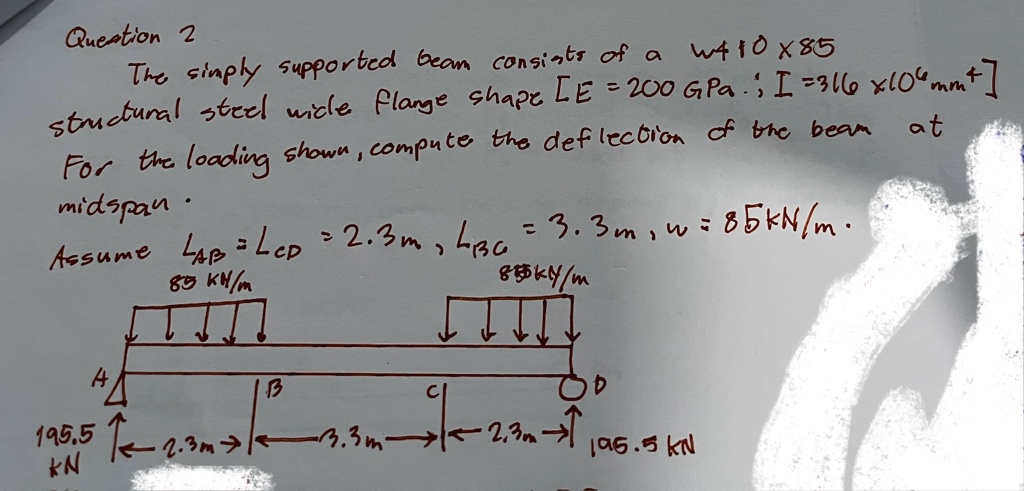 Question 2
The simply supported beam consists of a W410 x 85
structural steel wide flange shape [E = 200 GPa.; I = 316 x10⁶ mm⁴]
For the loading shown, compute the deflection of the beam at
midspan.
Assume L_AB = L_CD = 2.3m, L_BC = 3.3m, w = 85 kN/m.
85 kN/m
85 kN/m
A
B
C
D
195.5 kN
2.3m
3.3m
2.3m
195.5 kN